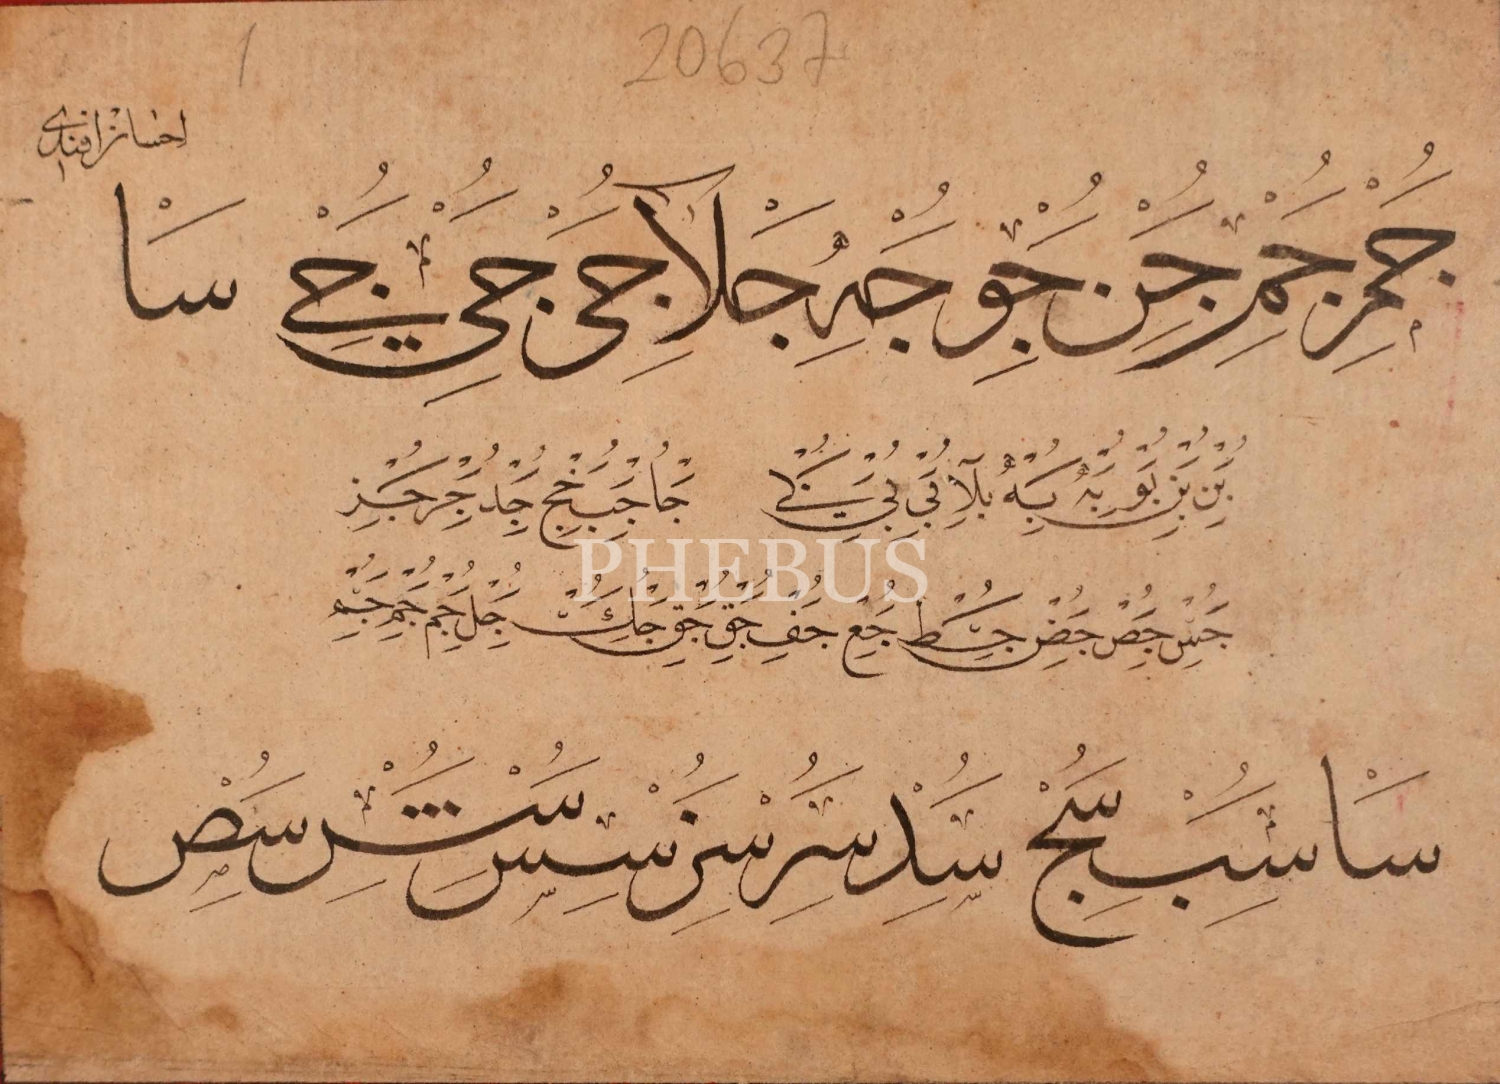 1 20637
احسان افندی
جم جم جن جو جه جلا جى جى جے سا
بن بن بو به به بلا بى بى بے جا جب جج جد جر جز
جس جص جض جط جع جف جق جق جك جل جم جم جم
PHEBUS
سا سب سج سد سر سز سس سش سص